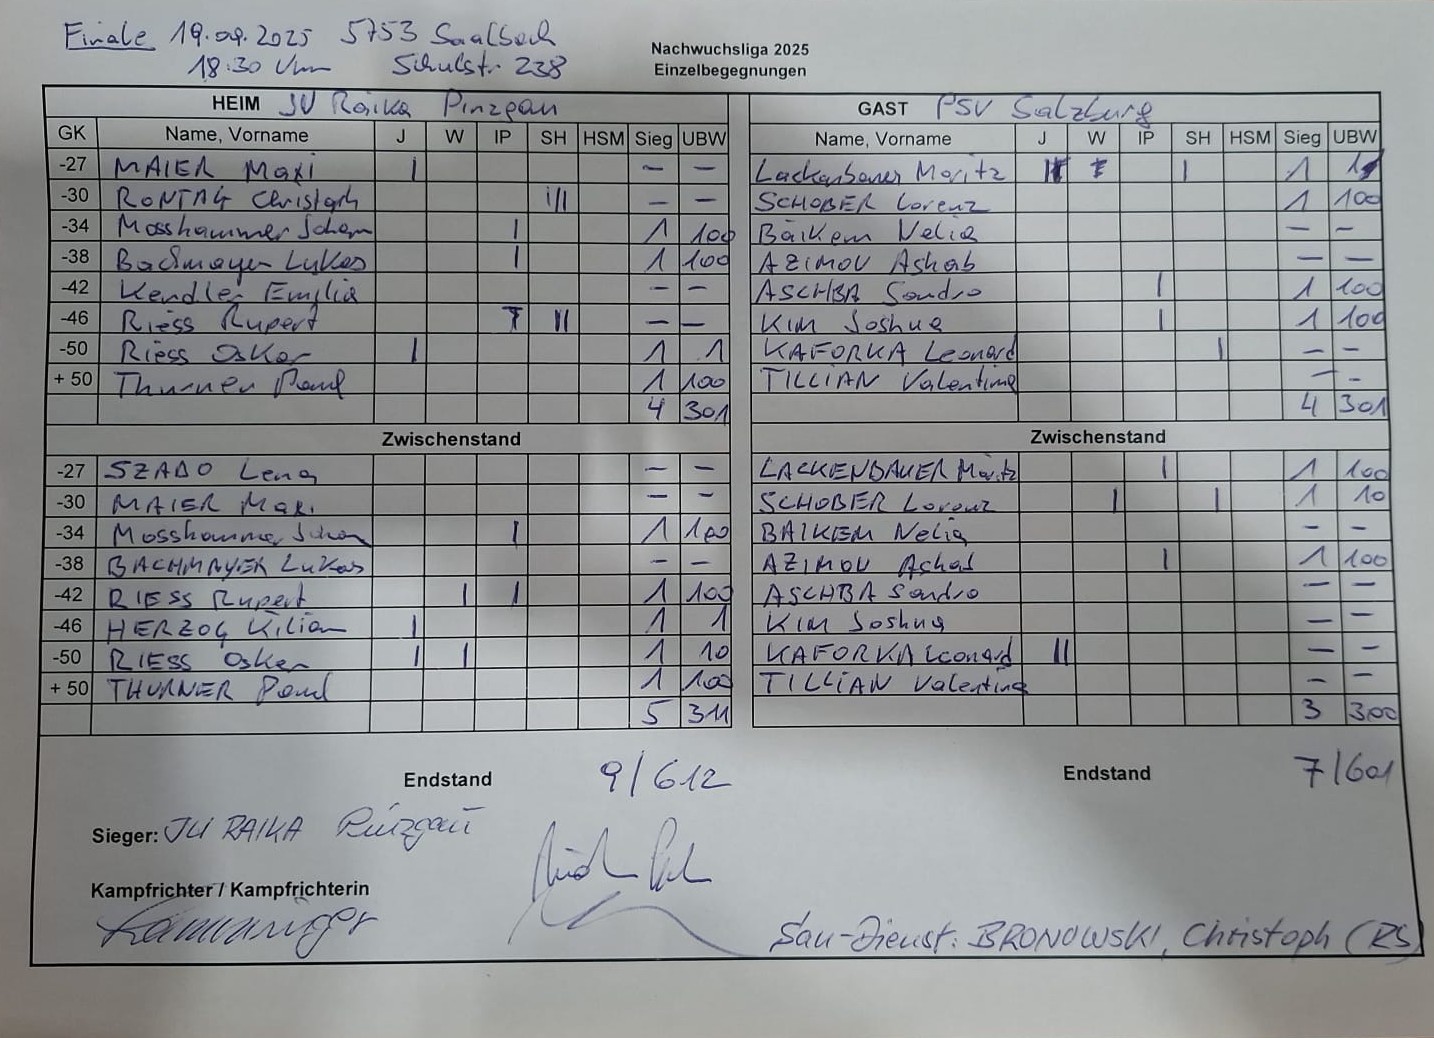 Finale 19.09.2025 5753 Saalbach
18:30 Uhr Schulstr. 238
Nachwuchsliga 2025
Einzelbegegnungen
HEIM JU Raika Pinzgau GAST PSV Salzburg
GK Name, Vorname J W IP SH HSM Sieg UBW Name, Vorname J W IP SH HSM Sieg UBW
-27 MAIER Maxi | — — Lackenbauer Moritz | 1 1
-30 RONTAG Christoph ||| — — SCHOBER Lorenz 1 100
-34 Mosshammer | 1 100 Baikem Nelia — —
-38 Bachmayer Lukas | 1 100 AZIMOV Ashab — —
-42 Kendler Emilia — — ASCHBA Sandro | 1 100
-46 Riess Rupert || — — KIM Joshua | 1 100
-50 Riess Oskar | 1 1 KAFORKA Leonard | — —
+ 50 Thurner Paul 1 100 TILLIAN Valentina — —
4 301 4 301
Zwischenstand Zwischenstand
-27 SZABO Lena — — LACKENBAUER Moritz | 1 100
-30 MAIER Maxi — — SCHOBER Lorenz | | 1 10
-34 Mosshammer | 1 100 BAIKEM Nelia — —
-38 BACHMAYER Lukas — — AZIMOV Ashab | 1 100
-42 RIESS Rupert | | 1 100 ASCHBA Sandro — —
-46 HERZOG Kilian | 1 1 KIM Joshua — —
-50 RIESS Oskar | | 1 10 KAFORKA Leonard || — —
+ 50 THURNER Paul 1 100 TILLIAN Valentina — —
5 311 3 300
Endstand 9/612 Endstand 7/601
Sieger: JU RAIKA Pinzgau
Kampfrichter / Kampfrichterin
San-Dienst: BRONOWSKI, Christoph (RS)